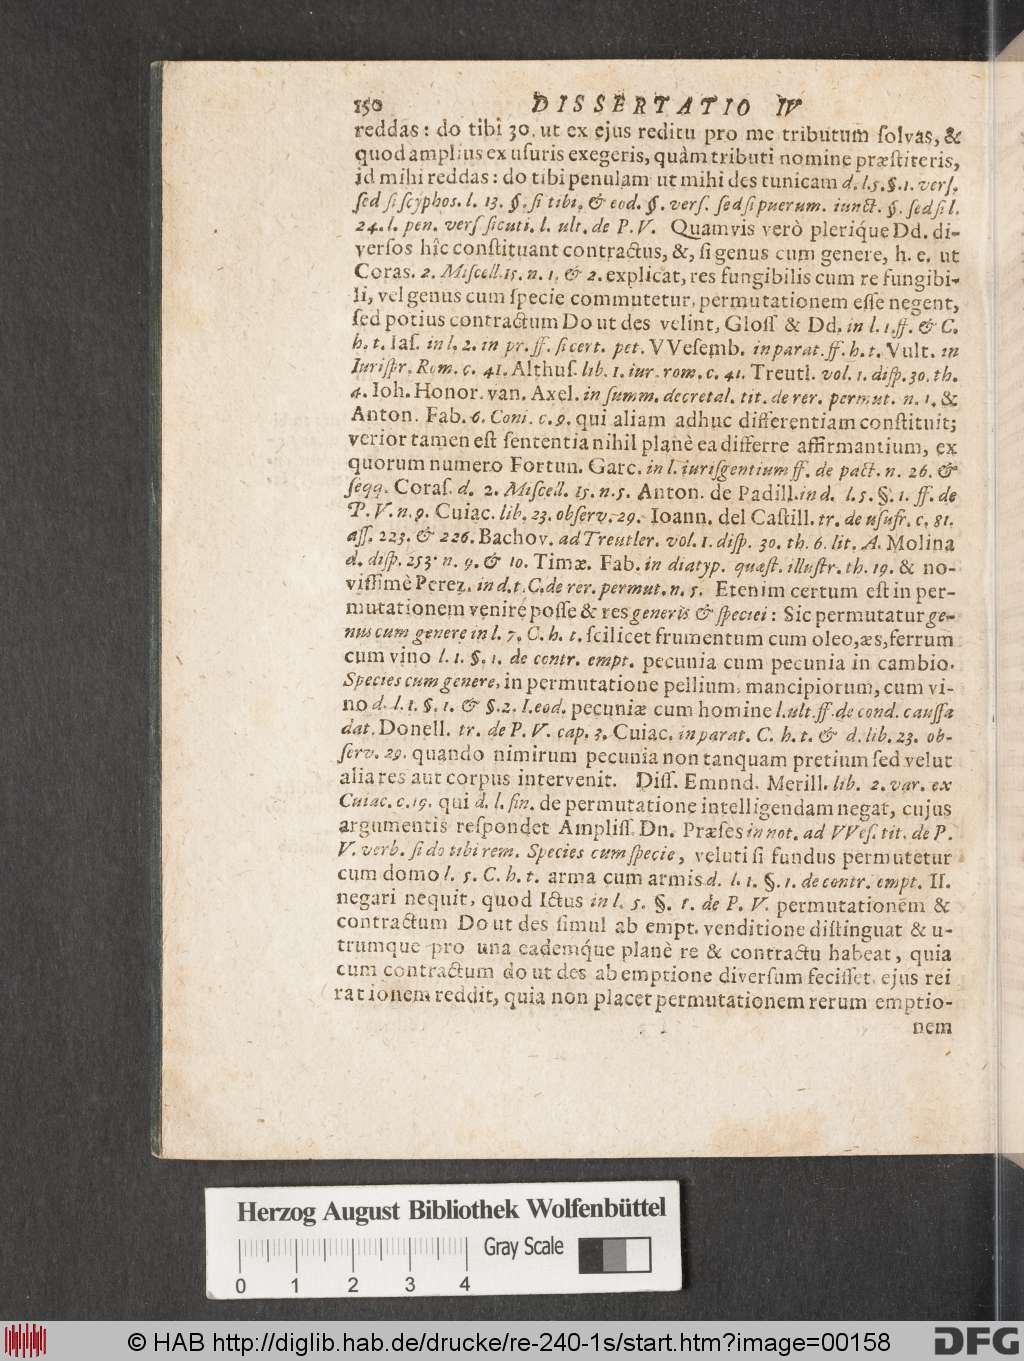 150 DISSERTATIO IV
reddas: do tibi 30. ut ex ejus reditu pro me tributum solvas, &
quod amplius ex usuris exegeris, quàm tributi nomine præstiteris,
id mihi reddas: do tibi penulam ut mihi des tunicam d. l. 5. §. 1. vers.
sed si scyphos. l. 13. §. si tibi, & eod. §. vers. sed si puerum. iunct. §. sed si l.
24. l. pen. vers sicuti. l. ult. de P. V. Quamvis verò plerique Dd. di-
versos hîc constituant contractus, &, si genus cum genere, h. e. ut
Coras. 2. Miscell. 15. n. 1. & 2. explicat, res fungibilis cum re fungibi-
li, vel genus cum specie commutetur, permutationem esse negent,
sed potius contractum Do ut des velint, Gloss & Dd. in l. 1. ff. & C.
h. t. Ias. in l. 2. in pr. ff. si cert. pet. VVesemb. in parat. ff. h. t. Vult. in
Iurispr. Rom. c. 41. Althus. lib. 1. iur. rom. c. 41. Treutl. vol. 1. disp. 30. th.
4. Ioh. Honor. van. Axel. in summ. decretal. tit. de rer. permut. n. 1. &
Anton. Fab. 6. Coni. c. 9. qui aliam adhuc differentiam constituit;
verior tamen est sententia nihil planè ea differre affirmantium, ex
quorum numero Fortun. Garc. in l. iurisgentium ff. de pact. n. 26. &
seqq. Coras. d. 2. Miscell. 15. n. 5. Anton. de Padill. in d. l. 5. §. 1. ff. de
P. V. n. 9. Cuiac. lib. 23. observ. 29. Ioann. del Castill. tr. de usufr. c. 81.
ass. 223. & 226. Bachov. ad Treutler. vol. 1. disp. 30. th. 6. lit. A. Molina
d. disp. 253. n. 9. & 10. Timæ. Fab. in diatyp. quæst. illustr. th. 19. & no-
vissimè Perez. in d. t. C. de rer. permut. n. 5. Etenim certum est in per-
mutationem venire posse & res generis & speciei: Sic permutatur ge-
nus cum genere in l. 7. C. h. t. scilicet frumentum cum oleo, æs, ferrum
cum vino l. 1. §. 1. de contr. empt. pecunia cum pecunia in cambio.
Species cum genere, in permutatione pellium, mancipiorum, cum vi-
no d. l. 1. §. 1. & §. 2. I. eod. pecuniæ cum homine l. ult. ff. de cond. caussa
dat. Donell. tr. de P. V. cap. 3. Cuiac. in parat. C. h. t. & d. lib. 23. ob-
serv. 29. quando nimirum pecunia non tanquam pretium sed velut
alia res aut corpus intervenit. Diss. Emnnd. Merill. lib. 2. var. ex
Cuiac. c. 19. qui d. l. fin. de permutatione intelligendam negat, cujus
argumentis respondet Ampliss. Dn. Præses in not. ad VVes. tit. de P.
V. verb. si do tibi rem. Species cum specie, veluti si fundus permutetur
cum domo l. 5. C. h. t. arma cum armis d. l. 1. §. 1. de contr. empt. II.
negari nequit, quod Ictus in l. 5. §. 1. de P. V. permutationem &
contractum Do ut des simul ab empt. venditione distinguat & u-
trumque pro una eademque planè re & contractu habeat, quia
cum contractum do ut des ab emptione diversum fecisset, ejus rei
rationem reddit, quia non placet permutationem rerum emptio-
nem
Herzog August Bibliothek Wolfenbüttel
Gray Scale
0 1 2 3 4
© HAB http://diglib.hab.de/drucke/re-240-1s/start.htm?image=00158
DFG